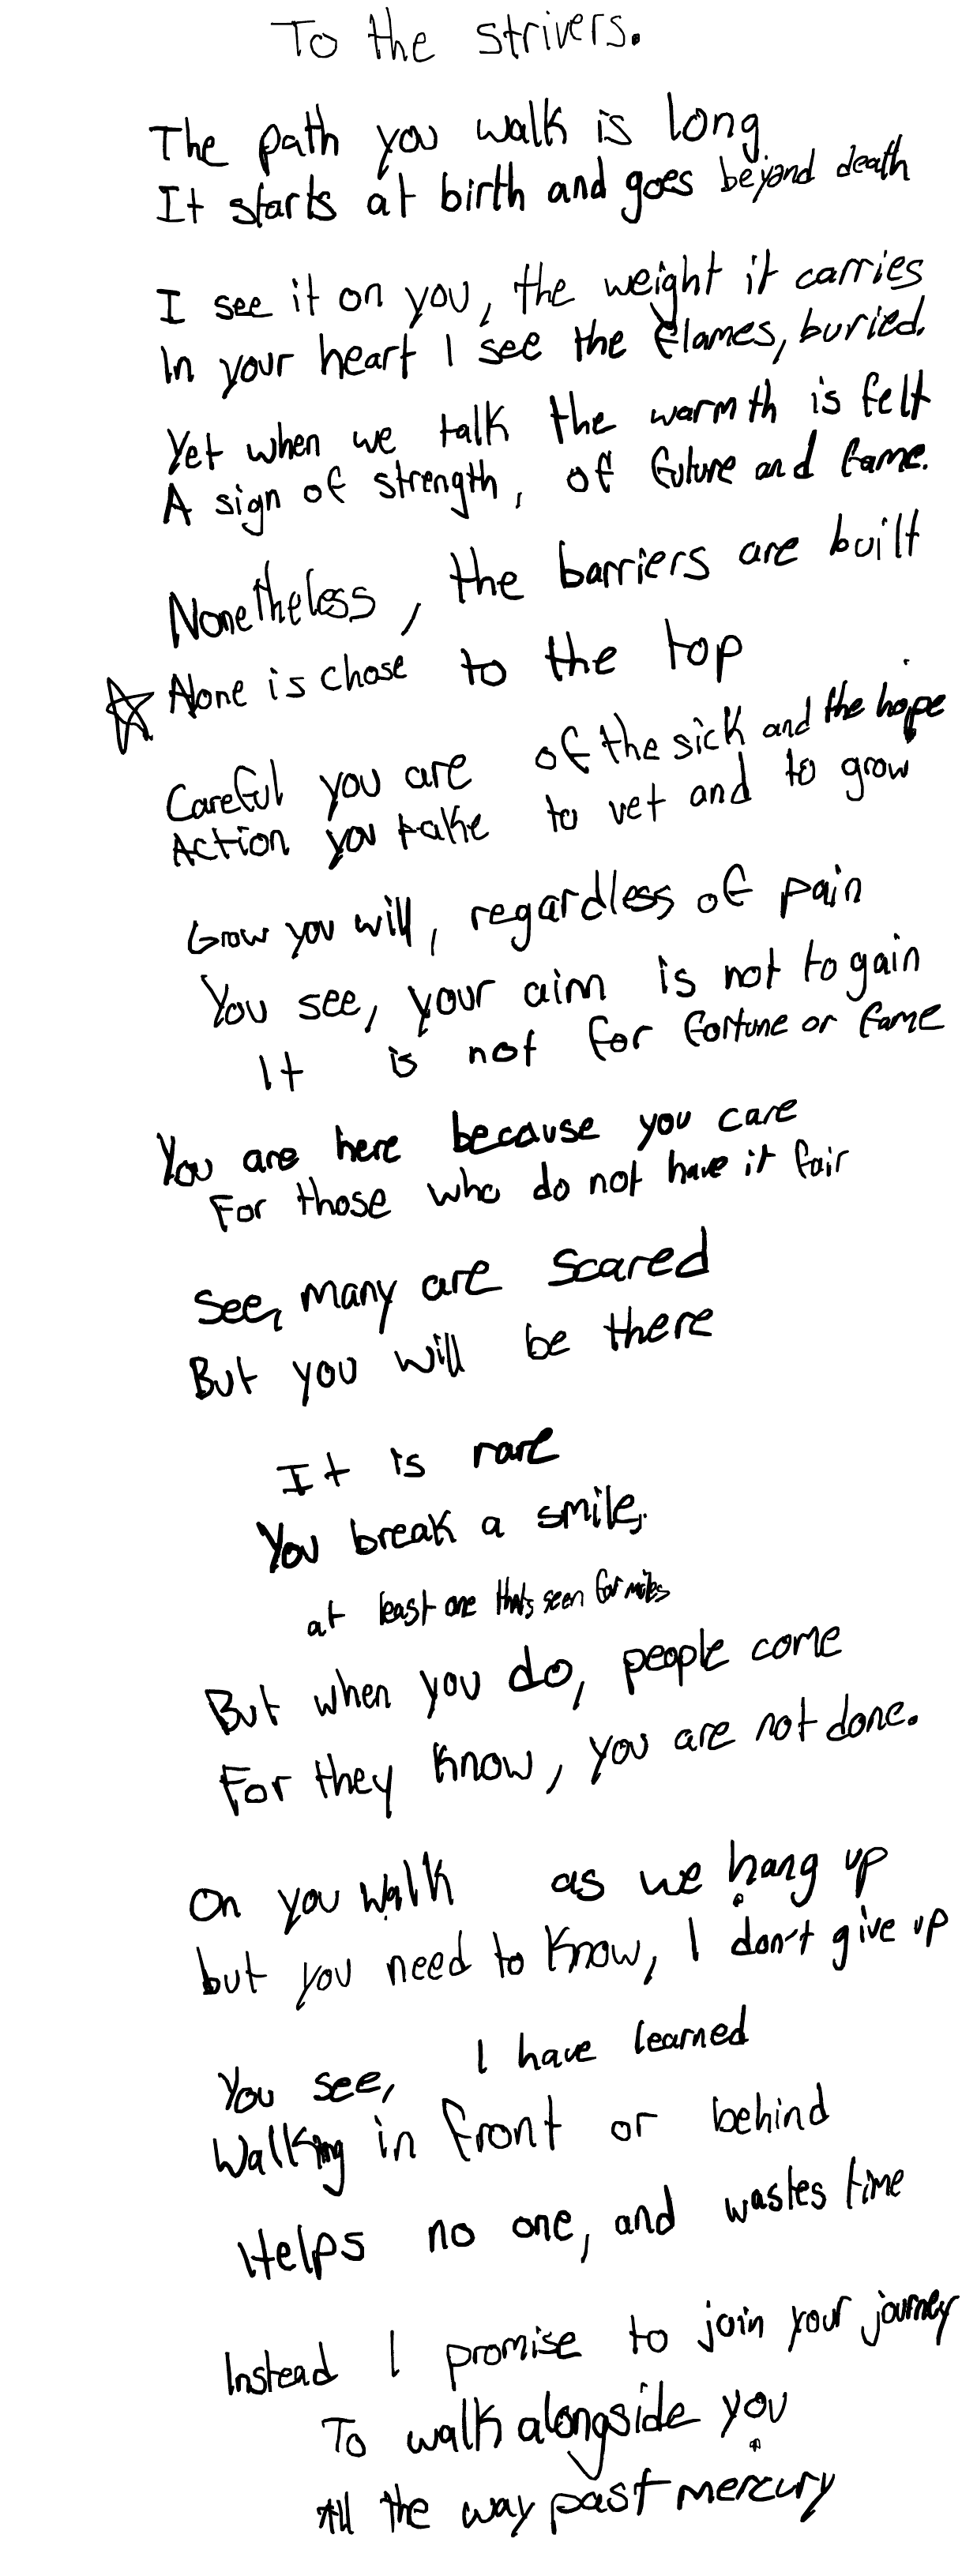 To the strivers.
The path you walk is long
It starts at birth and goes beyond death
I see it on you, the weight it carries
In your heart I see the flames, buried.
Yet when we talk the warmth is felt
A sign of strength, of future and fame.
Nonetheless, the barriers are built
Alone is chose to the top
Careful you are of the sick and the hope
Action you take to vet and to grow
Grow you will, regardless of pain
You see, your aim is not to gain
It is not for fortune or fame
You are here because you care
For those who do not have it fair
See, many are scared
But you will be there
It is rare
You break a smile,
at least one thats seen for miles
But when you do, people come
For they know, you are not done.
On you walk as we hang up
but you need to know, I don't give up
You see, I have learned
Walking in front or behind
Helps no one, and wastes time
Instead I promise to join your journey
To walk alongside you
All the way past mercury